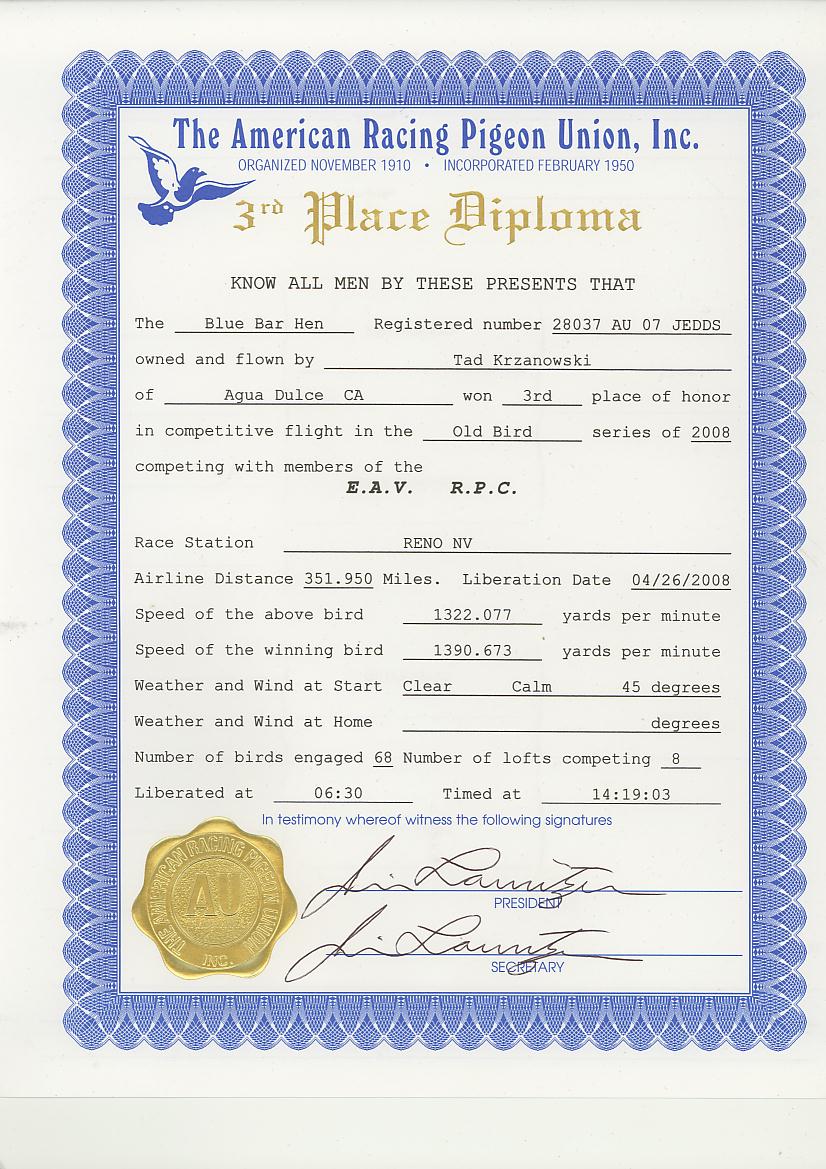 The American Racing Pigeon Union, Inc.
ORGANIZED NOVEMBER 1910 • INCORPORATED FEBRUARY 1950
3rd Place Diploma
KNOW ALL MEN BY THESE PRESENTS THAT
The Blue Bar Hen Registered number 28037 AU 07 JEDDS
owned and flown by Tad Krzanowski
of Agua Dulce CA won 3rd place of honor
in competitive flight in the Old Bird series of 2008
competing with members of the
E.A.V. R.P.C.
Race Station RENO NV
Airline Distance 351.950 Miles. Liberation Date 04/26/2008
Speed of the above bird 1322.077 yards per minute
Speed of the winning bird 1390.673 yards per minute
Weather and Wind at Start Clear Calm 45 degrees
Weather and Wind at Home degrees
Number of birds engaged 68 Number of lofts competing 8
Liberated at 06:30 Timed at 14:19:03
In testimony whereof witness the following signatures
PRESIDENT
SECRETARY
THE AMERICAN RACING PIGEON UNION
AU
INC.